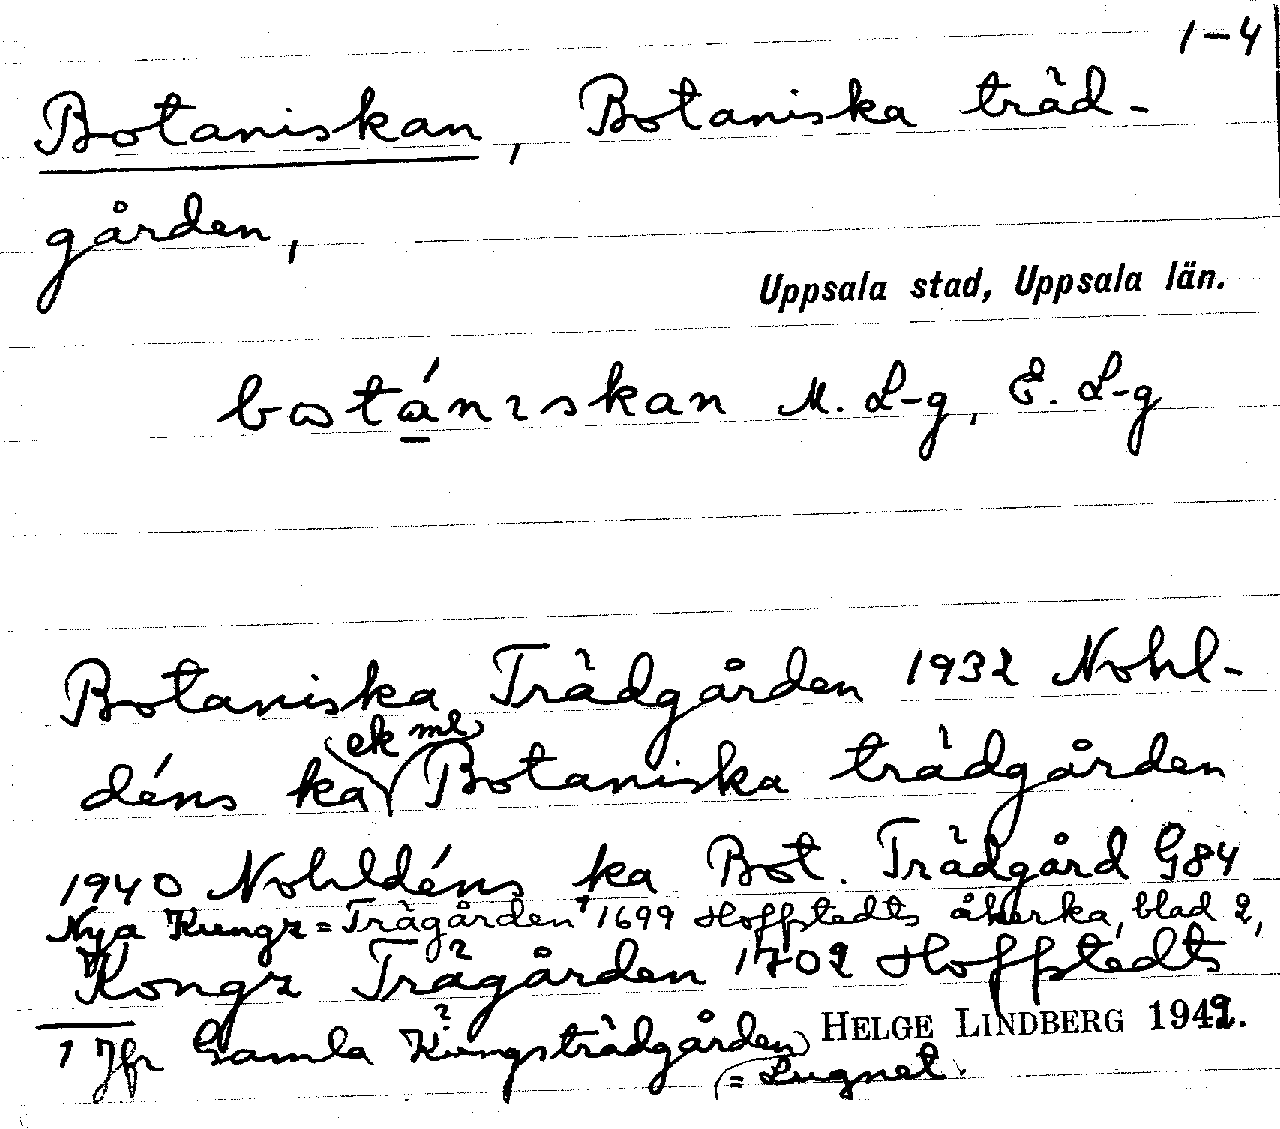 1-4
Botaniskan, Botaniska träd-
gården,
Uppsala stad, Uppsala län.
botániskan M. L-g, E. L-g
Botaniska Trädgården 1932 Nohl-
ek ml
déns ka Botaniska trädgården
1940 Nohldéns ka Bot. Trädgård G84
Nya Kungz=Trägården¹ 1699 Hoffstedts åkerka, blad 2,
Kongz Trägården 1702 Hoffstedts
HELGE LINDBERG 1942.
1 Jfr Gamla Kungsträdgården
= Lugnet